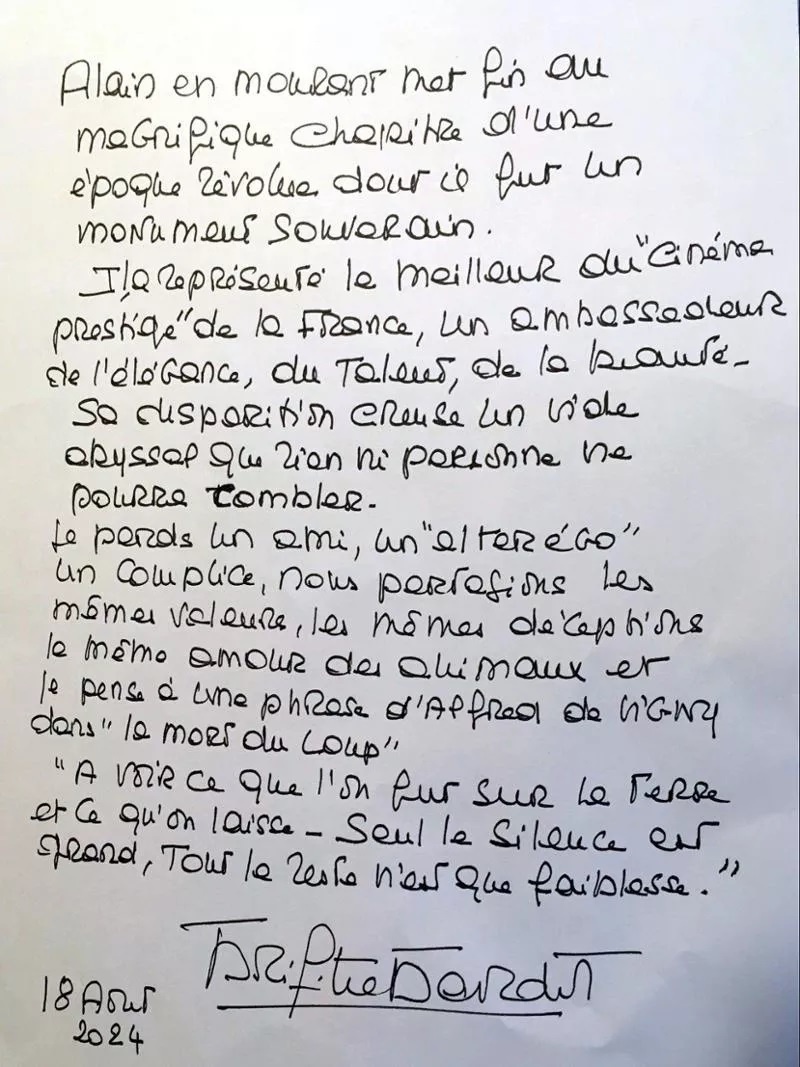 Alain en mourant met fin au
magnifique chapitre d'une
époque révolue dont il fut un
monument souverain.
Il a représenté le meilleur du "cinéma
prestige" de la France, un ambassadeur
de l'élégance, du Talent, de la beauté_
Sa disparition creuse un vide
abyssal que rien ni personne ne
pourra combler.
Je perds un ami, un "alter égo"
un complice, nous partagions les
mêmes valeurs, les mêmes déceptions
le même amour des animaux et
je pense à une phrase d'Alfred de VIGNY
dans "la mort du Loup"
"A voir ce que l'on fut sur la Terre
et ce qu'on laisse _ Seul le silence est
grand, Tout le reste n'est que faiblesse."
Brigitte Bardot
18 Août
2024